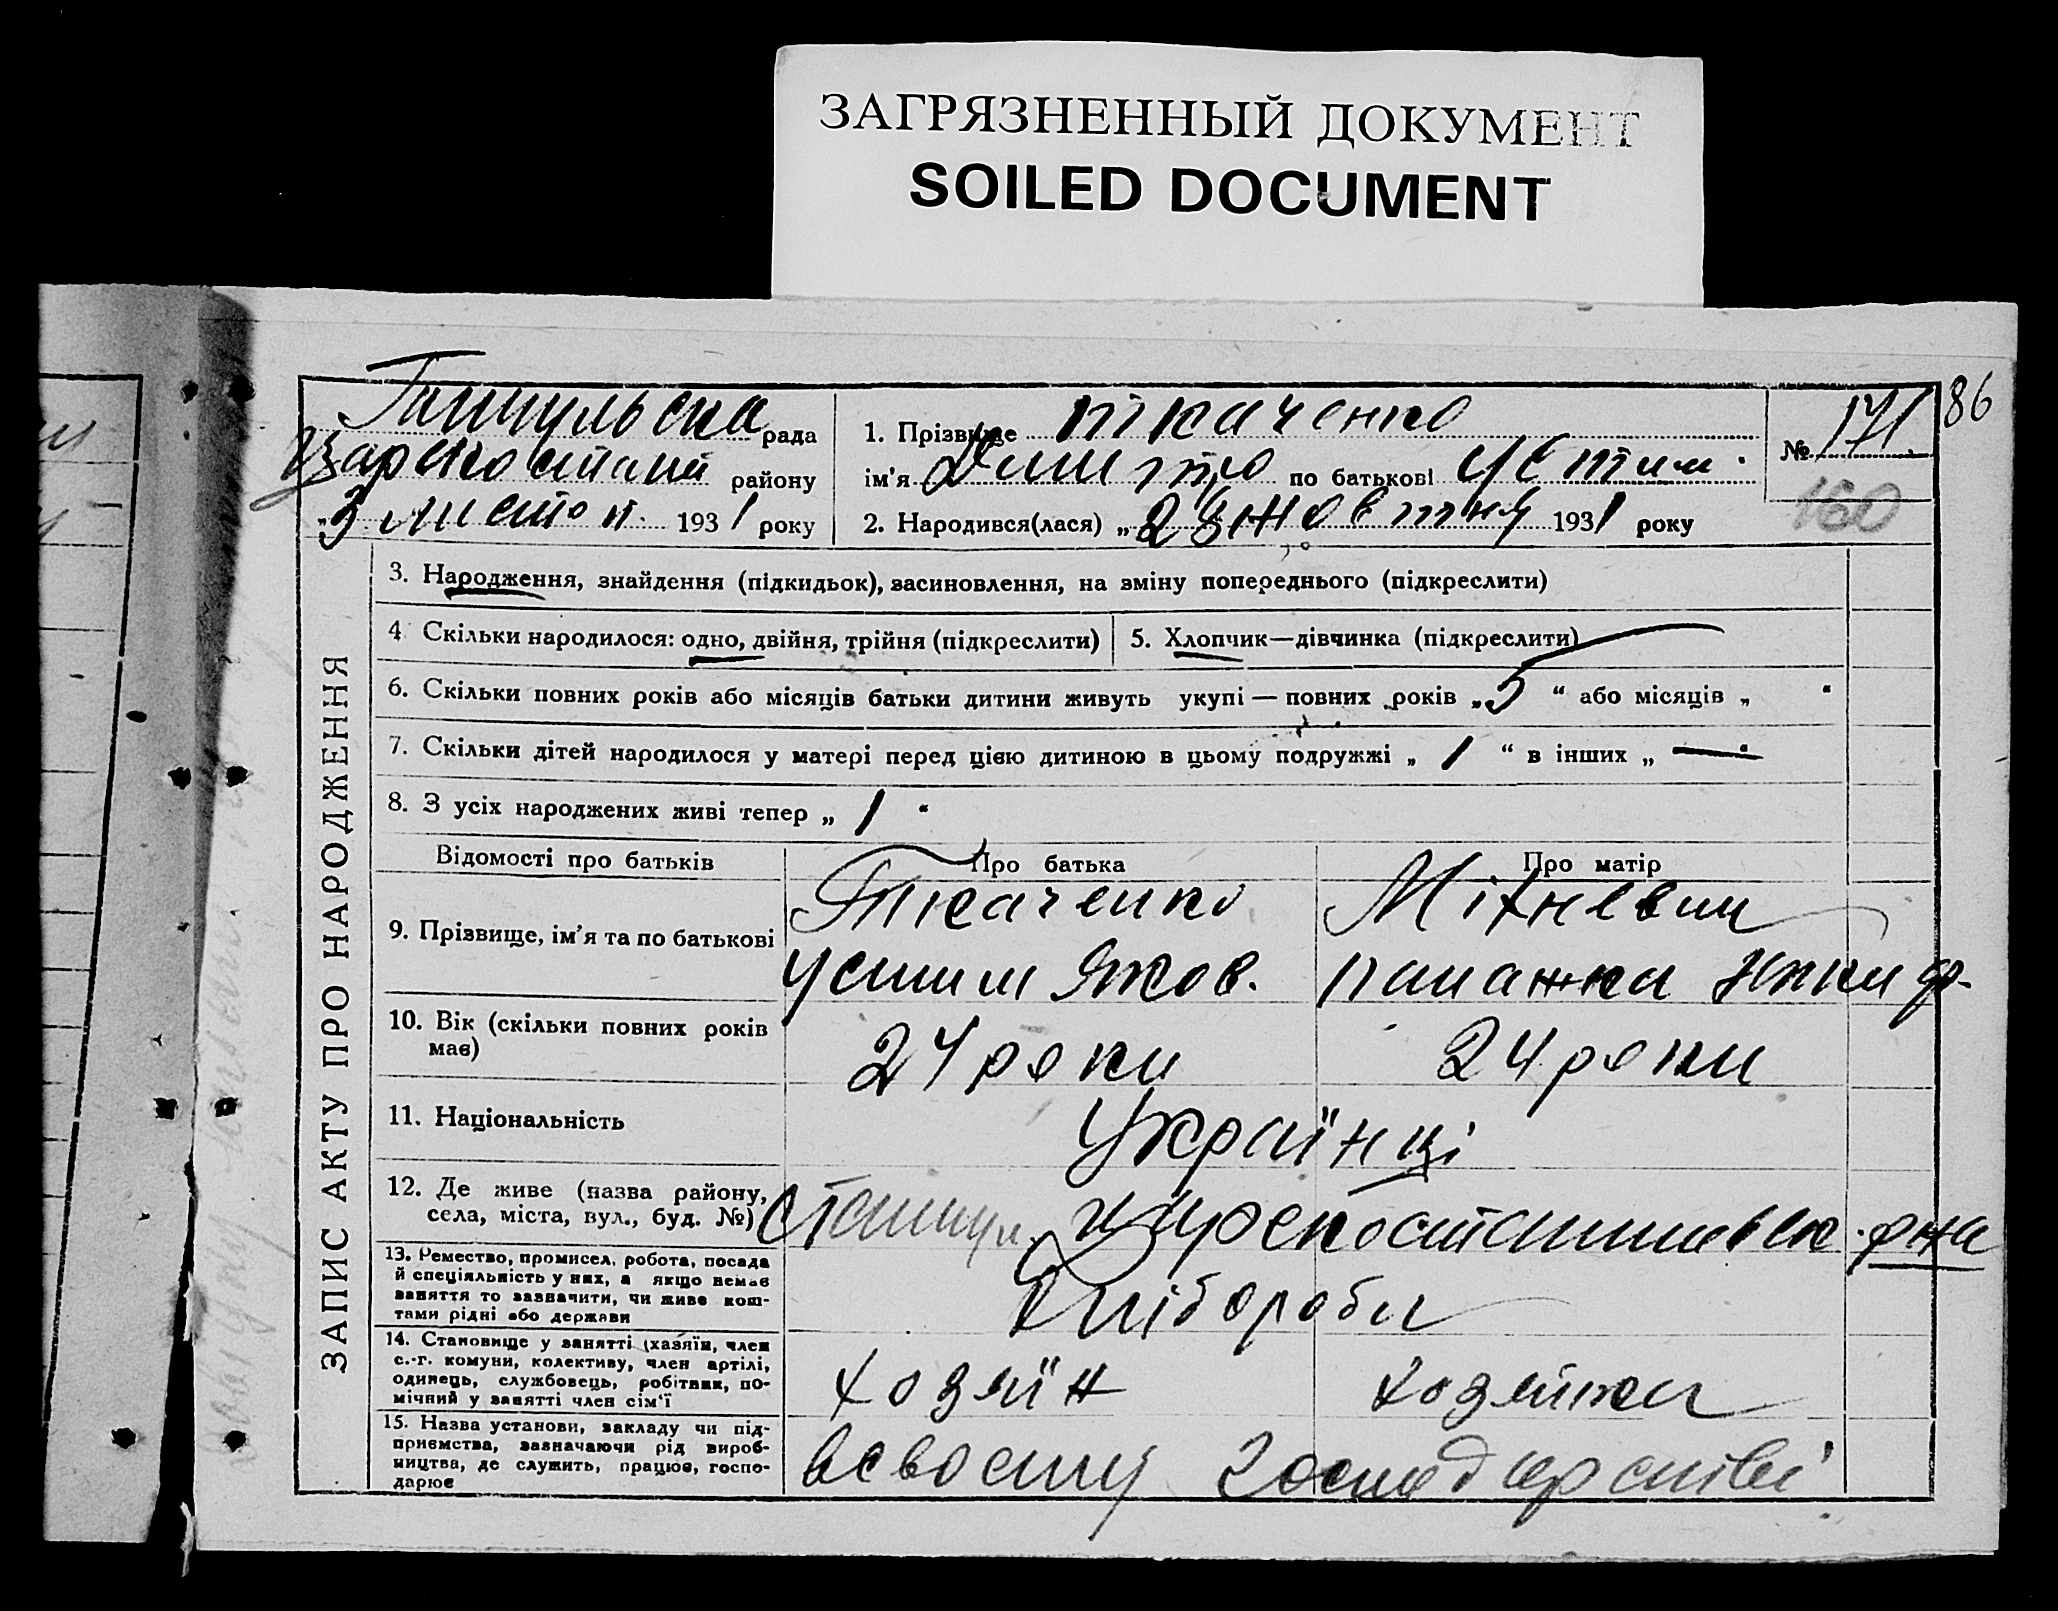 ЗАГРЯЗНЕННЫЙ ДОКУМЕНТ
SOILED DOCUMENT
86
рада
району
„3 листоп. 1931 року
1. Прізвище Ткаченко
ім'я Дмитро по батькові Устим.
2. Народився(лася) „28 жовтня 1931 року
№ 171.
160
ЗАПИС АКТУ ПРО НАРОДЖЕННЯ
3. Народження, знайдення (підкидьок), засиновлення, на зміну попереднього (підкреслити)
4. Скільки народилося: одно, двійня, трійня (підкреслити)
5. Хлопчик—дівчинка (підкреслити)
6. Скільки повних років або місяців батьки дитини живуть укупі — повних років „5“ або місяців „ “
7. Скільки дітей народилося у матері перед цією дитиною в цьому подружжі „1“ в інших „—“
8. З усіх народжених живі тепер „1“
Відомості про батьків
Про батька
Про матір
9. Прізвище, ім'я та по батькові
Ткаченко
Устим Яков.
Міхневич
10. Вік (скільки повних років
має)
24 роки
24 роки
11. Національність
Українці
12. Де живе (назва району,
села, міста, вул., буд. №)
р-на
13. Ремество, промисел, робота, посада
й спеціяльність у них, а якщо немає
заняття то зазначити, чи живе кош-
тами рідні або держави
Хлібороби
14. Становище у занятті (хазяїн, член
с.-г. комуни, колективу, член артілі,
одинець, службовець, робітник, по-
мічний у занятті член сім'ї
хозяїн
хозяйка
15. Назва установи, закладу чи під-
приємства, зазначаючи рід вироб-
ництва, де служить, працює, госпо-
дарює
в своєму господарстві